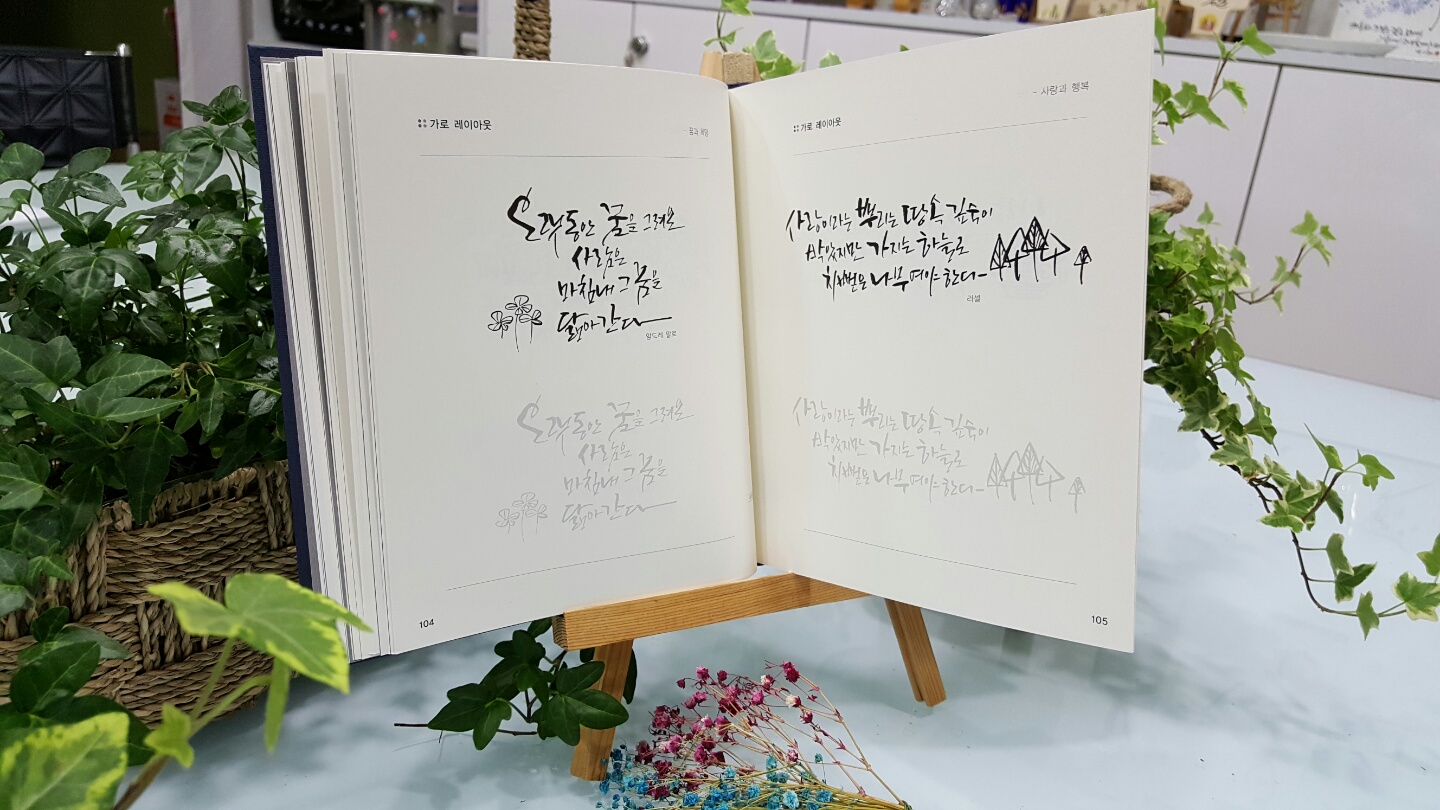 가로 레이아웃
- 꿈과 희망
오랫동안 꿈을 그려온
사람은
마침내 그 꿈을
닮아간다
앙드레 말로
오랫동안 꿈을 그려온
사람은
마침내 그 꿈을
닮아간다
104
- 사랑과 행복
가로 레이아웃
사랑이라는 뿌리는 땅속 깊숙이
박았지만 가지는 하늘로
치뻗은 나무여야 한다
러셀
사랑이라는 뿌리는 땅속 깊숙이
박았지만 가지는 하늘로
치뻗은 나무여야 한다
105